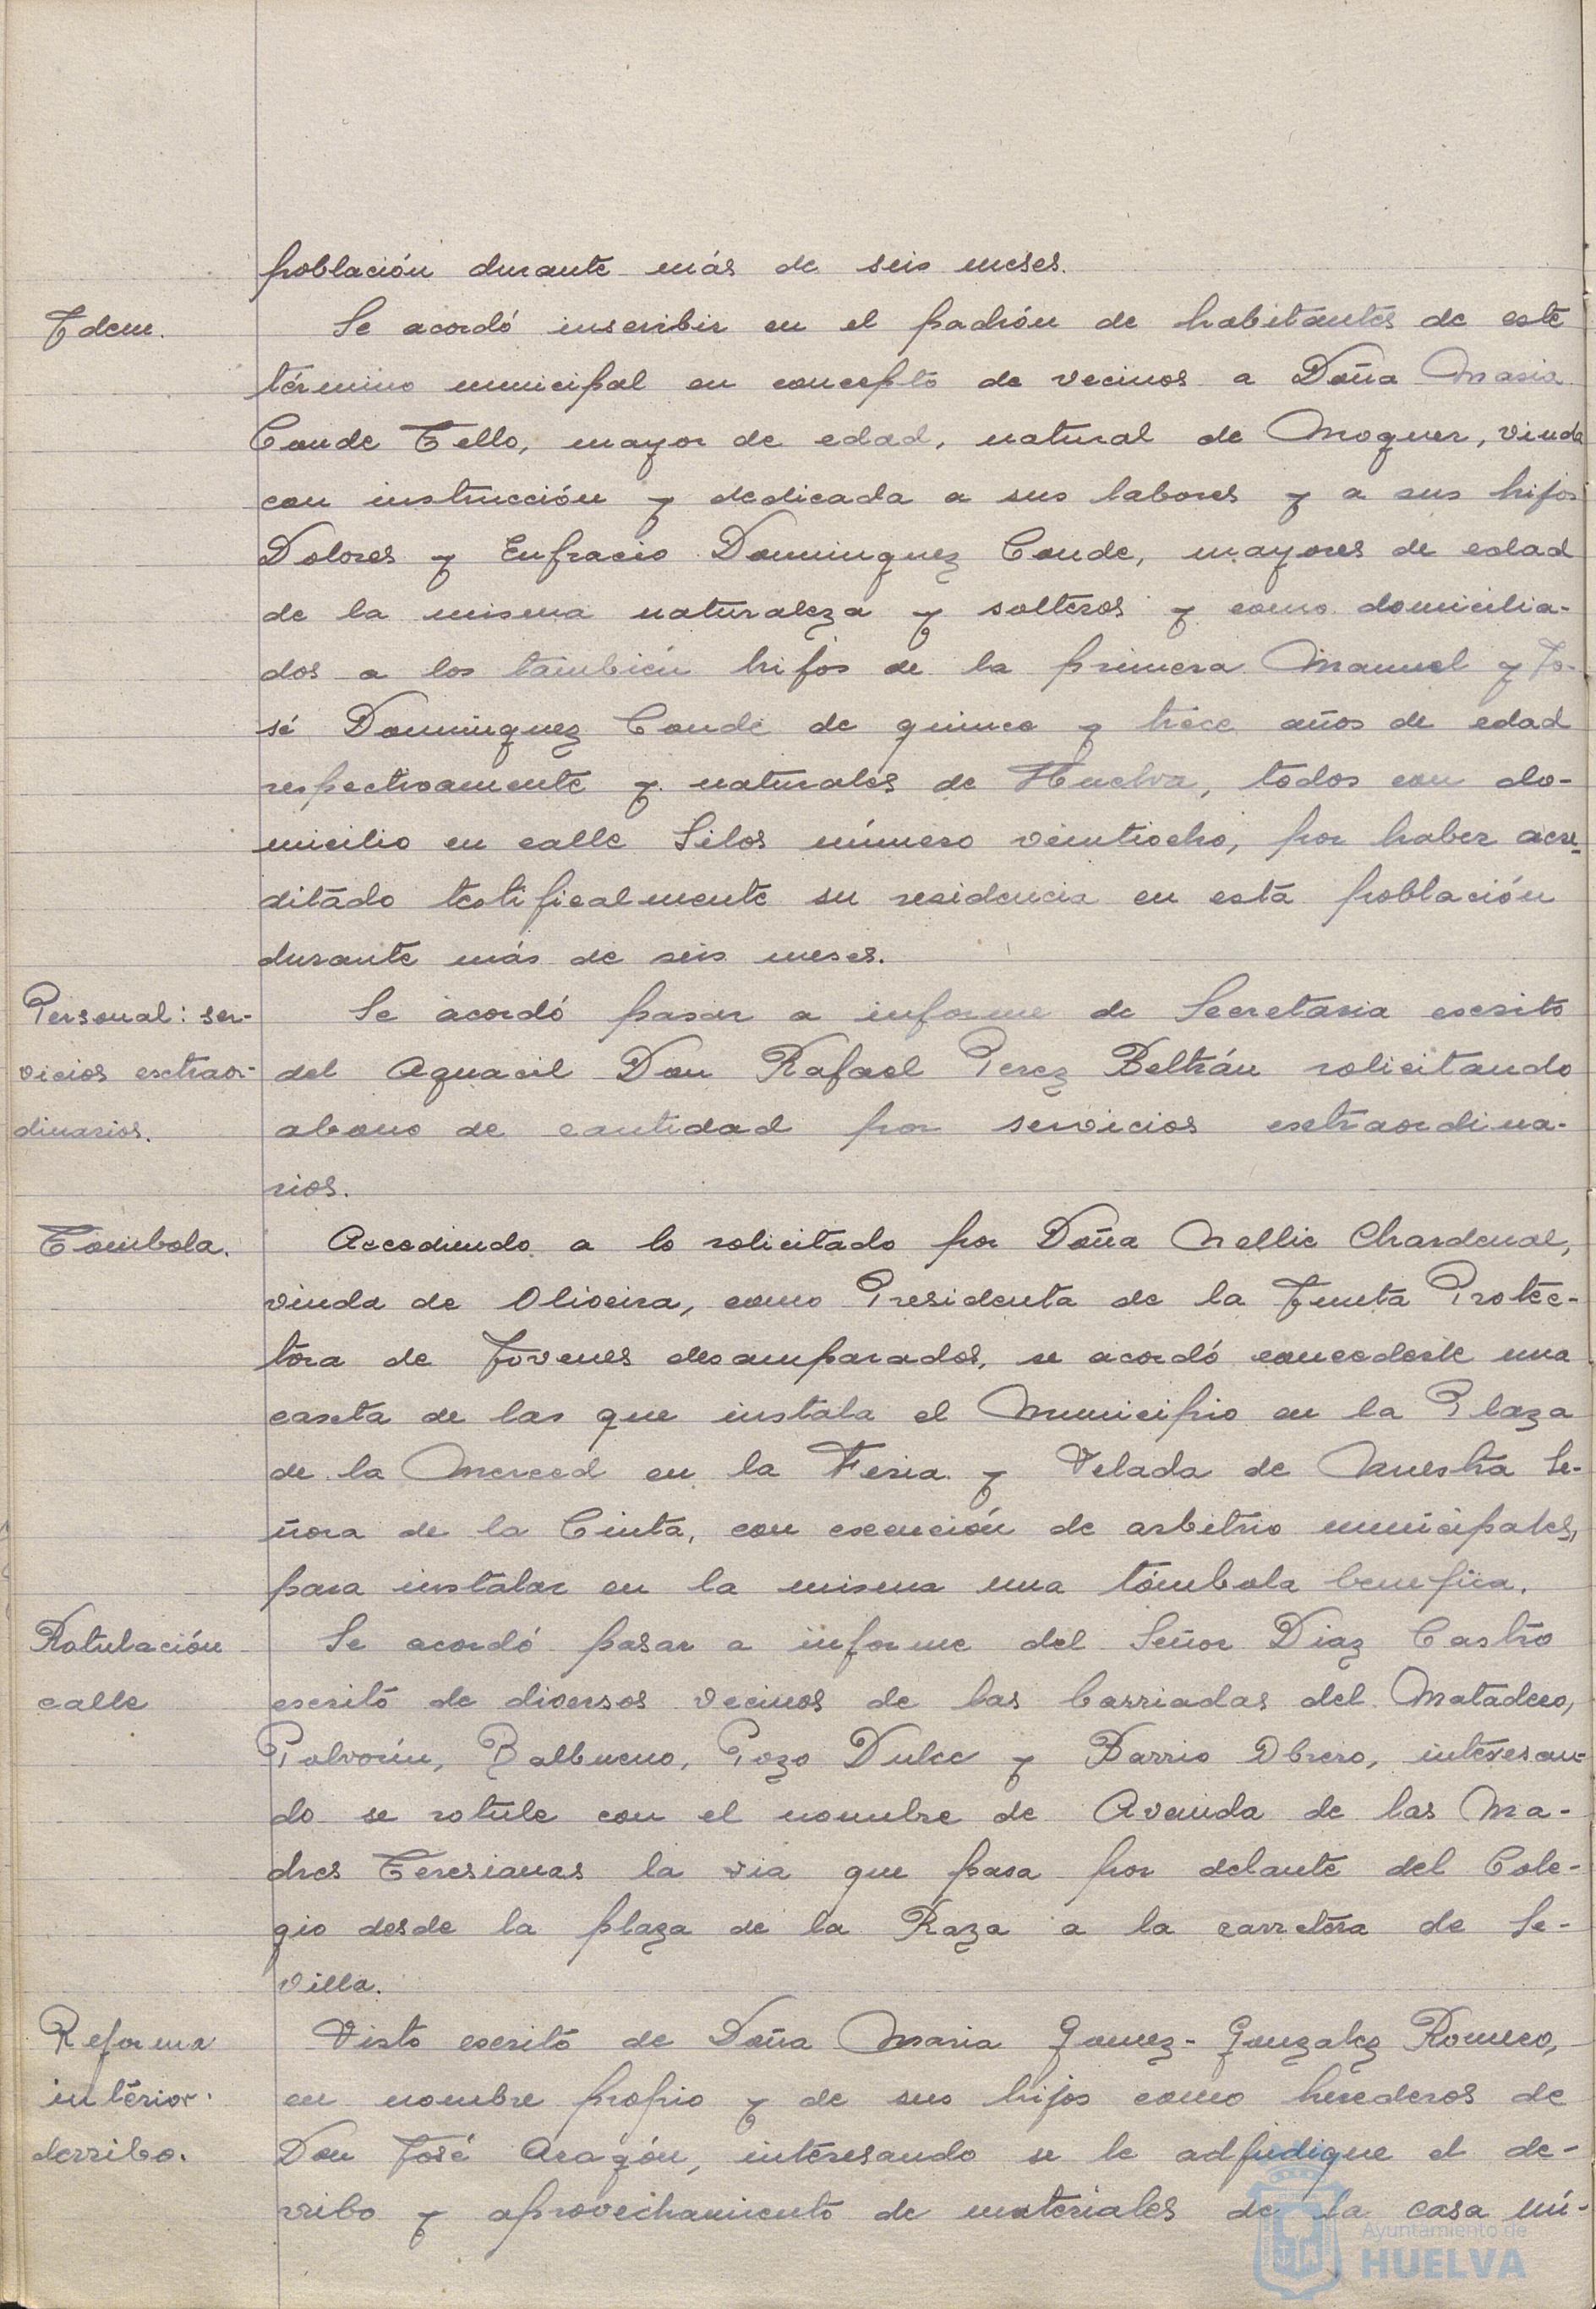 población durante más de seis meses.
Idem.
Se acordó inscribir en el padrón de habitantes de este
término municipal en concepto de vecinos a Doña Maria
Conde Tello, mayor de edad, natural de Moguer, viuda
con instrucción y dedicada a sus labores y a sus hijos
Dolores y Eufracio Dominguez Conde, mayores de edad
de la misma naturaleza y solteros y como domicilia-
dos a los también hijos de la primera Manuel y Jo-
sé Dominguez Conde de quince y trece años de edad
respectivamente y naturales de Huelva, todos con do-
micilio en calle Silos número veintiocho, por haber acre-
ditado testificalmente su residencia en esta población
durante más de seis meses.
Personal: ser-
vicios extraor-
dinarios.
Se acordó pasar a informe de Secretaria escrito
del Aguacil Don Rafael Perez Beltrán solicitando
abono de cantidad por servicios extraordina-
rios.
Tómbola.
Accediendo a lo solicitado por Doña Nellie Chardenal,
viuda de Oliveira, como Presidenta de la Junta Protec-
tora de Jovenes desamparados, se acordó concederle una
caseta de las que instala el Municipio en la Plaza
de la Merced en la Feria y Velada de Nuestra Se-
ñora de la Cinta, con exención de arbitrio municipales,
para instalar en la misma una tómbola benefica.
Rotulación
calle
Se acordó pasar a informe del Señor Diaz Castro
escrito de diversos vecinos de las barriadas del Matadero,
Polvorín, Balbueno, Pozo Dulce y Barrio Obrero, interesan-
do se rotule con el nombre de Avenida de las Ma-
dres Teresianas la via que pasa por delante del Cole-
gio desde la plaza de la Raza a la carretera de Se-
villa.
Reforma
interior:
derribo.
Visto escrito de Doña Maria Gomez-Gonzalez Romero,
en nombre propio y de sus hijos como herederos de
Don José Aragón, interesando se le adjudique el de-
rribo y aprovechamiento de materiales de la casa nú-
Ayuntamiento de
HUELVA